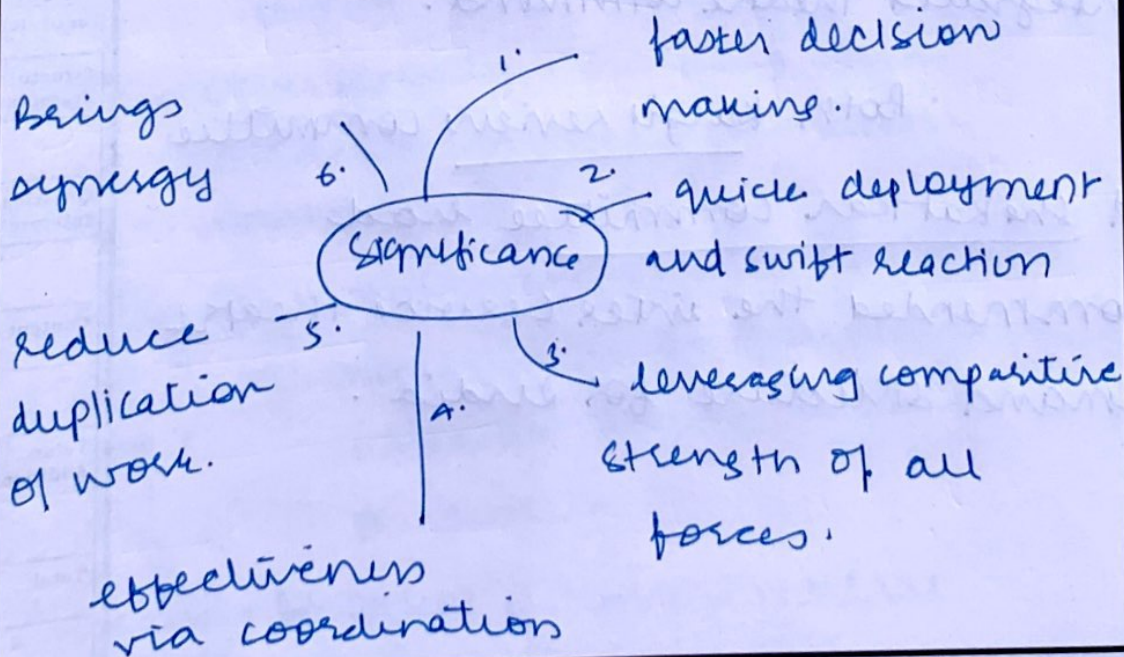 Significance
1. faster decision
making.
2. quick deployment
and swift reaction
3. leveraging comparitive
strength of all
forces.
4. effectiveness
via coordination
5. reduce
duplication
of work.
6. Brings
synergy